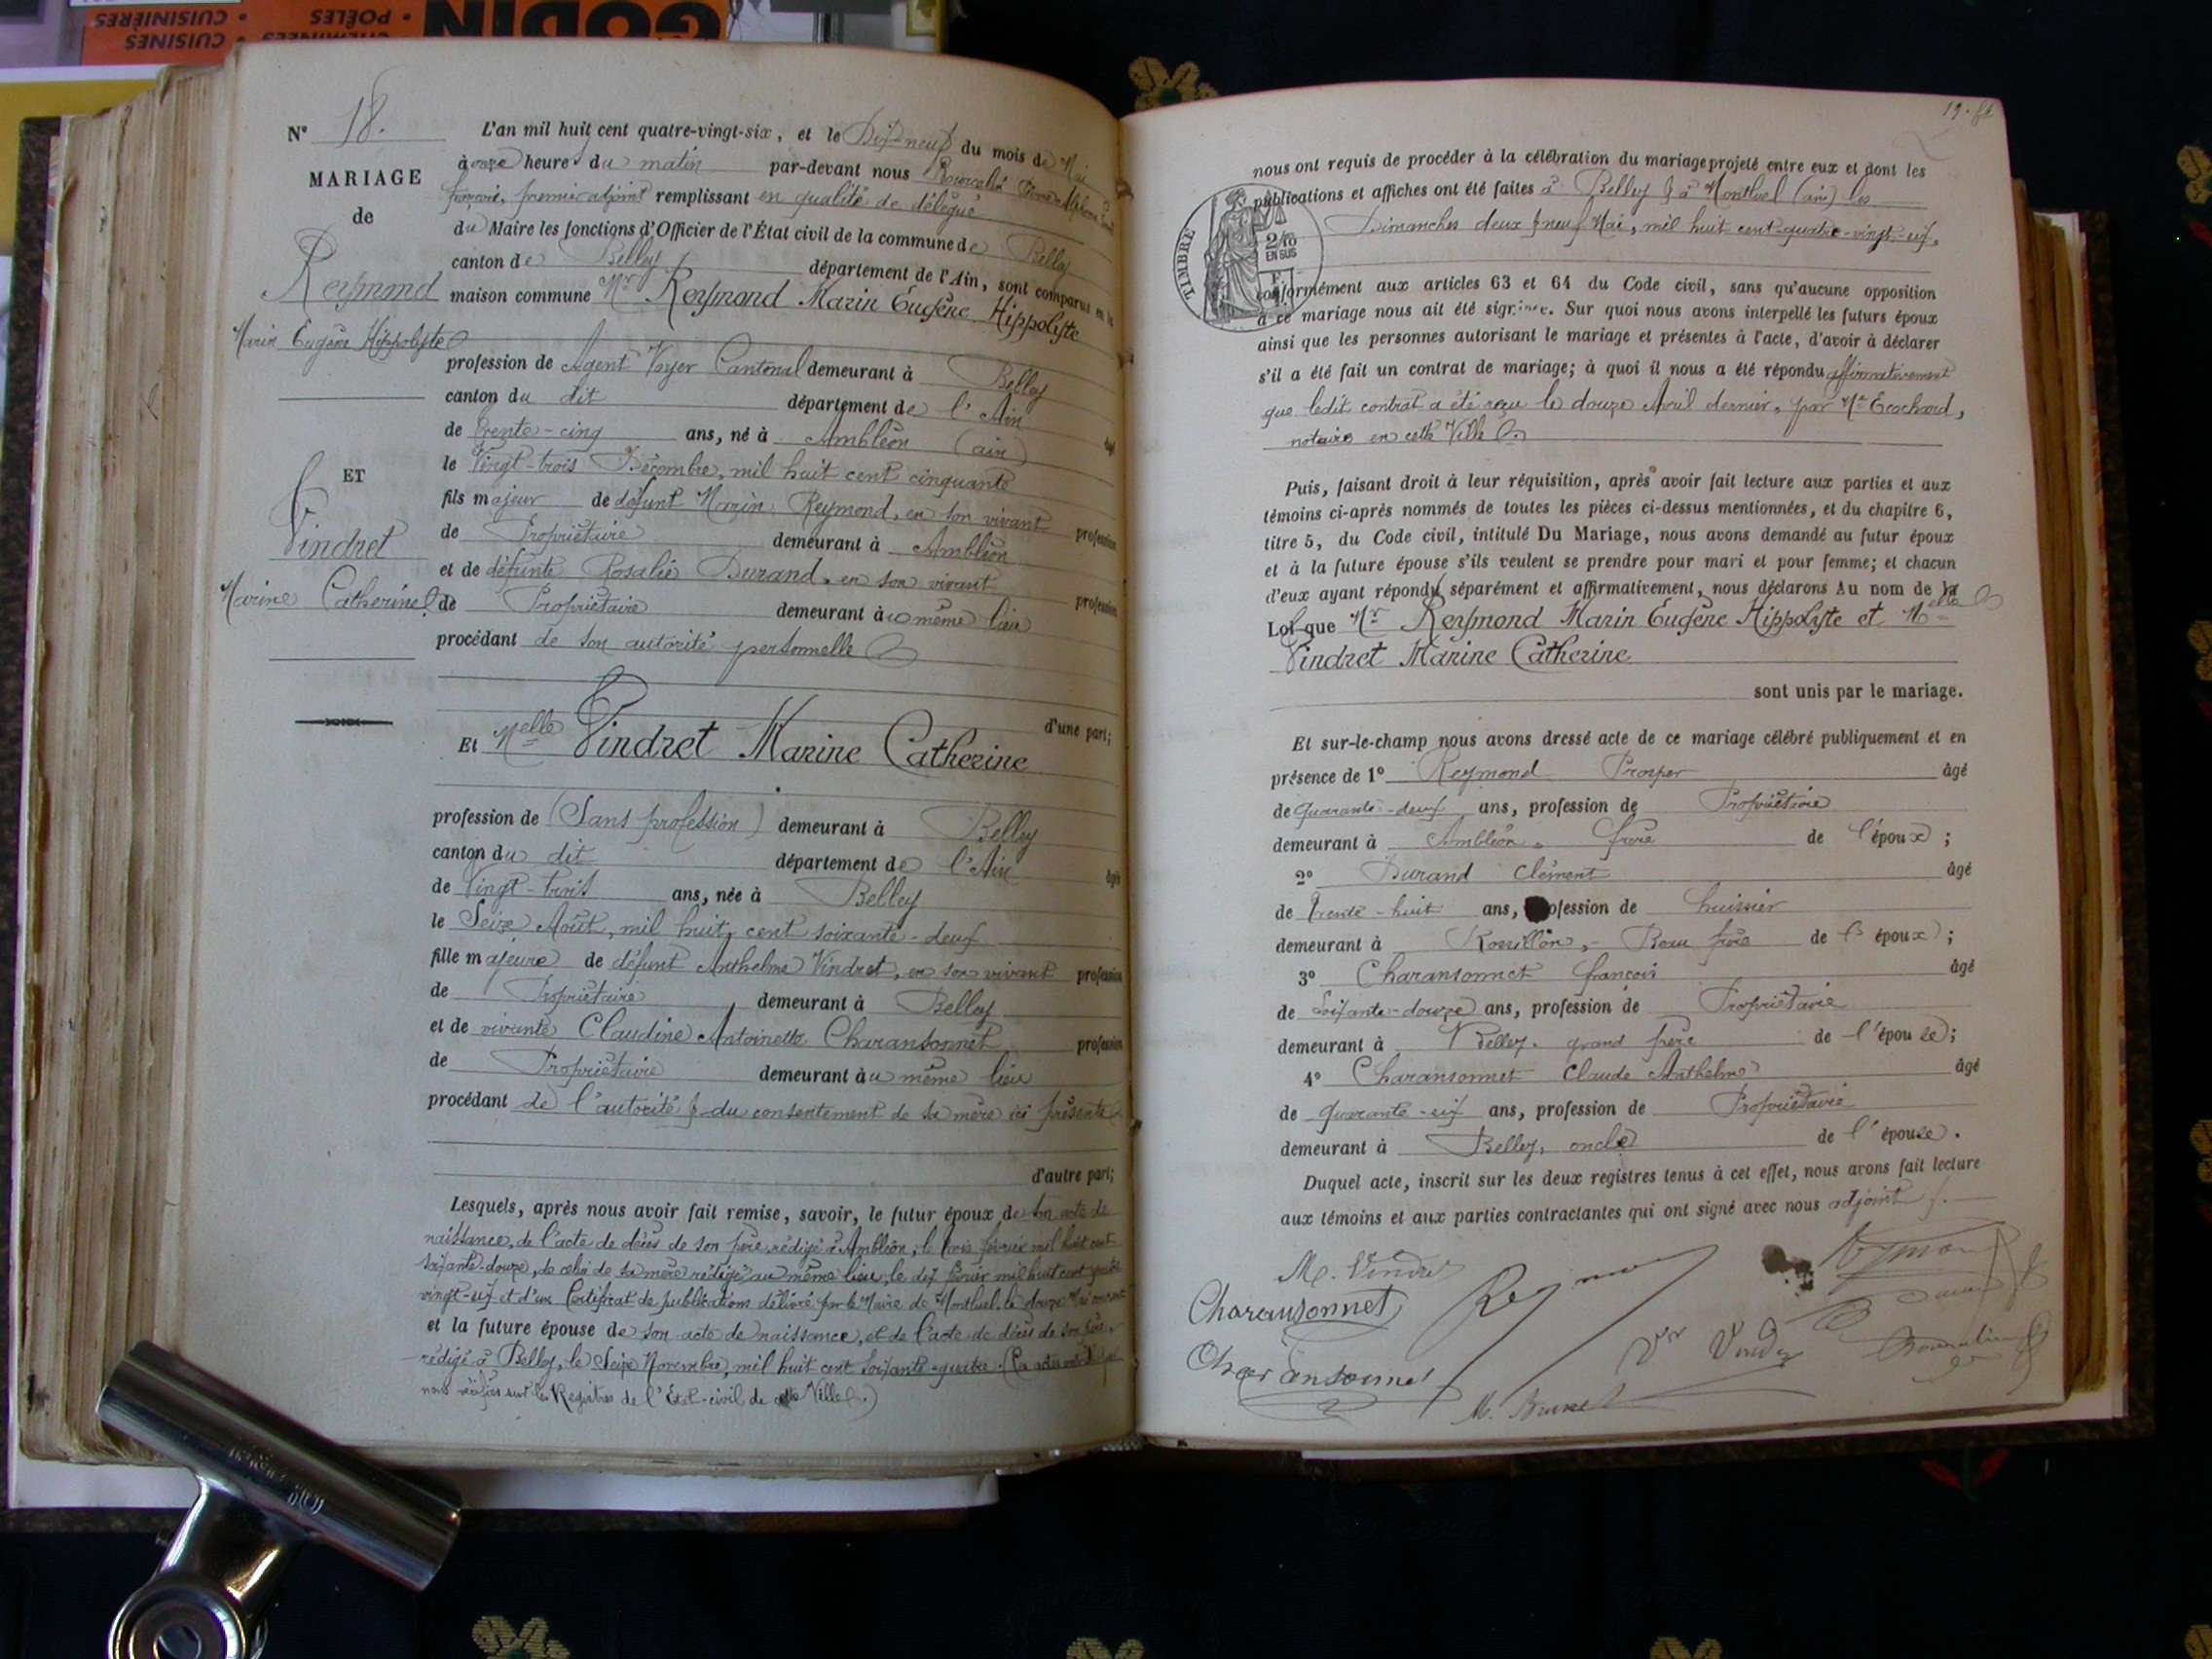 GODIN
CHEMINÉES • POÊLES •
CUISINES • CUISINIÈRES
N° 18.
MARIAGE
de
Reymond
Marin Eugène Hippolyte
ET
Vindret
Marine Catherine
L'an mil huit cent quatre-vingt-six, et le Dix-neuf du mois de Mai
à onze heures du matin par-devant nous
premier adjoint remplissant en qualité de délégué
du Maire les fonctions d'Officier de l'État civil de la commune de Belley
canton de Belley département de l'Ain, sont comparus en la
maison commune Mr Reymond Marin Eugène Hippolyte
profession de Agent Voyer Cantonal demeurant à Belley
canton du dit département de l'Ain
de trente-cinq ans, né à Ambléon (ain) âgé
le Vingt-trois Décembre, mil huit cent cinquante
fils majeur de défunt Marin Reymond, en son vivant profession
de Propriétaire demeurant à Ambléon
et de défunte Rosalie Durand, en son vivant profession
de Propriétaire demeurant au même lieu
procédant de son autorité personnelle
d'une part;
Et Melle Vindret Marine Catherine
profession de (Sans profession) demeurant à Belley
canton du dit département de l'Ain
de Vingt-trois ans, née à Belley âgée
le Seize Août, mil huit cent soixante-deux
fille majeure de défunt Anthelme Vindret, en son vivant profession
de Propriétaire demeurant à Belley
et de vivante Claudine Antoinette Charansonnet profession
de Propriétaire demeurant au même lieu
procédant de l'autorité & du consentement de sa mère ici présente
d'autre part;
Lesquels, après nous avoir fait remise, savoir, le futur époux de son acte de
naissance, de l'acte de décès de son père rédigé à Ambléon, le trois février mil huit cent
soixante-douze, de celui de sa mère rédigé au même lieu, le dix février mil huit cent quatre
vingt-six et d'un Certificat de publications délivré par le Maire de Montluel le douze Mai courant
et la future épouse de son acte de naissance, et de l'acte de décès de son père,
rédigé à Belley, le Seize Novembre, mil huit cent soixante-quatre. (Ces actes
nous vérifiés sur les Registres de l'État-civil de cette Ville.)
19.
nous ont requis de procéder à la célébration du mariage projeté entre eux et dont les
publications et affiches ont été faites à Belley & à Montluel (ain) les
Dimanches deux & neuf Mai, mil huit cent quatre-vingt-six,
TIMBRE
2/10
EN SUS
conformément aux articles 63 et 64 du Code civil, sans qu'aucune opposition
à ce mariage nous ait été signifiée. Sur quoi nous avons interpellé les futurs époux
ainsi que les personnes autorisant le mariage et présentes à l'acte, d'avoir à déclarer
s'il a été fait un contrat de mariage; à quoi il nous a été répondu affirmativement
que ledit contrat a été reçu le douze Avril dernier, par Me Ecochard,
notaire en cette Ville
Puis, faisant droit à leur réquisition, après avoir fait lecture aux parties et aux
témoins ci-après nommés de toutes les pièces ci-dessus mentionnées, et du chapitre 6,
titre 5, du Code civil, intitulé Du Mariage, nous avons demandé au futur époux
et à la future épouse s'ils veulent se prendre pour mari et pour femme; et chacun
d'eux ayant répondu séparément et affirmativement, nous déclarons Au nom de la
Loi que Mr Reymond Marin Eugène Hippolyte et Melle
Vindret Marine Catherine
sont unis par le mariage.
Et sur-le-champ nous avons dressé acte de ce mariage célébré publiquement et en
présence de 1° Reymond Prosper âgé
de quarante-deux ans, profession de Propriétaire
demeurant à Ambléon, frère de l'époux;
2° Durand Clément âgé
de trente-huit ans, profession de huissier
demeurant à Rossillon, Beau frère de l'époux;
3° Charansonnet françois âgé
de Soixante-douze ans, profession de Propriétaire
demeurant à Belley, grand père de l'épouse;
4° Charansonnet Claude Anthelme âgé
de quarante-six ans, profession de Propriétaire
demeurant à Belley, oncle de l'épouse.
Duquel acte, inscrit sur les deux registres tenus à cet effet, nous avons fait lecture
aux témoins et aux parties contractantes qui ont signé avec nous adjoint
M. Vindret
Charansonnet
Charansonnet
Vve Vindret